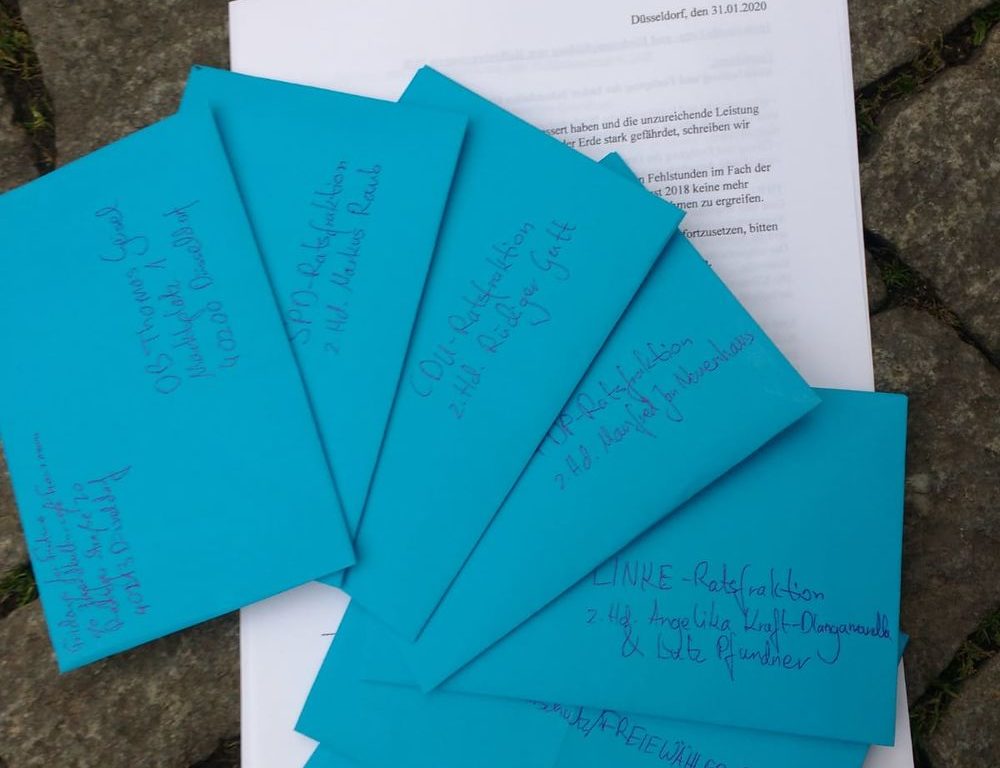 Düsseldorf, den 31.01.2020
ssert haben und die unzureichende Leistung
der Erde stark gefährdet, schreiben wir
n Fehlstunden im Fach der
st 2018 keine mehr
men zu ergreifen.
fortzusetzen, bitten
OB Thomas Geisel
Marktplatz 1
40200 Düsseldorf
Fridays for Future
40213 Düsseldorf
SPD-Ratsfraktion
z. Hd. Markus Raub
CDU-Ratsfraktion
z. Hd. Rüdiger Gutt
FDP-Ratsfraktion
z. Hd. Manfred Neuenhaus
LINKE-Ratsfraktion
z. Hd. Angelika Kraft-
& Lutz Pfundner
/FREIE WÄHLER